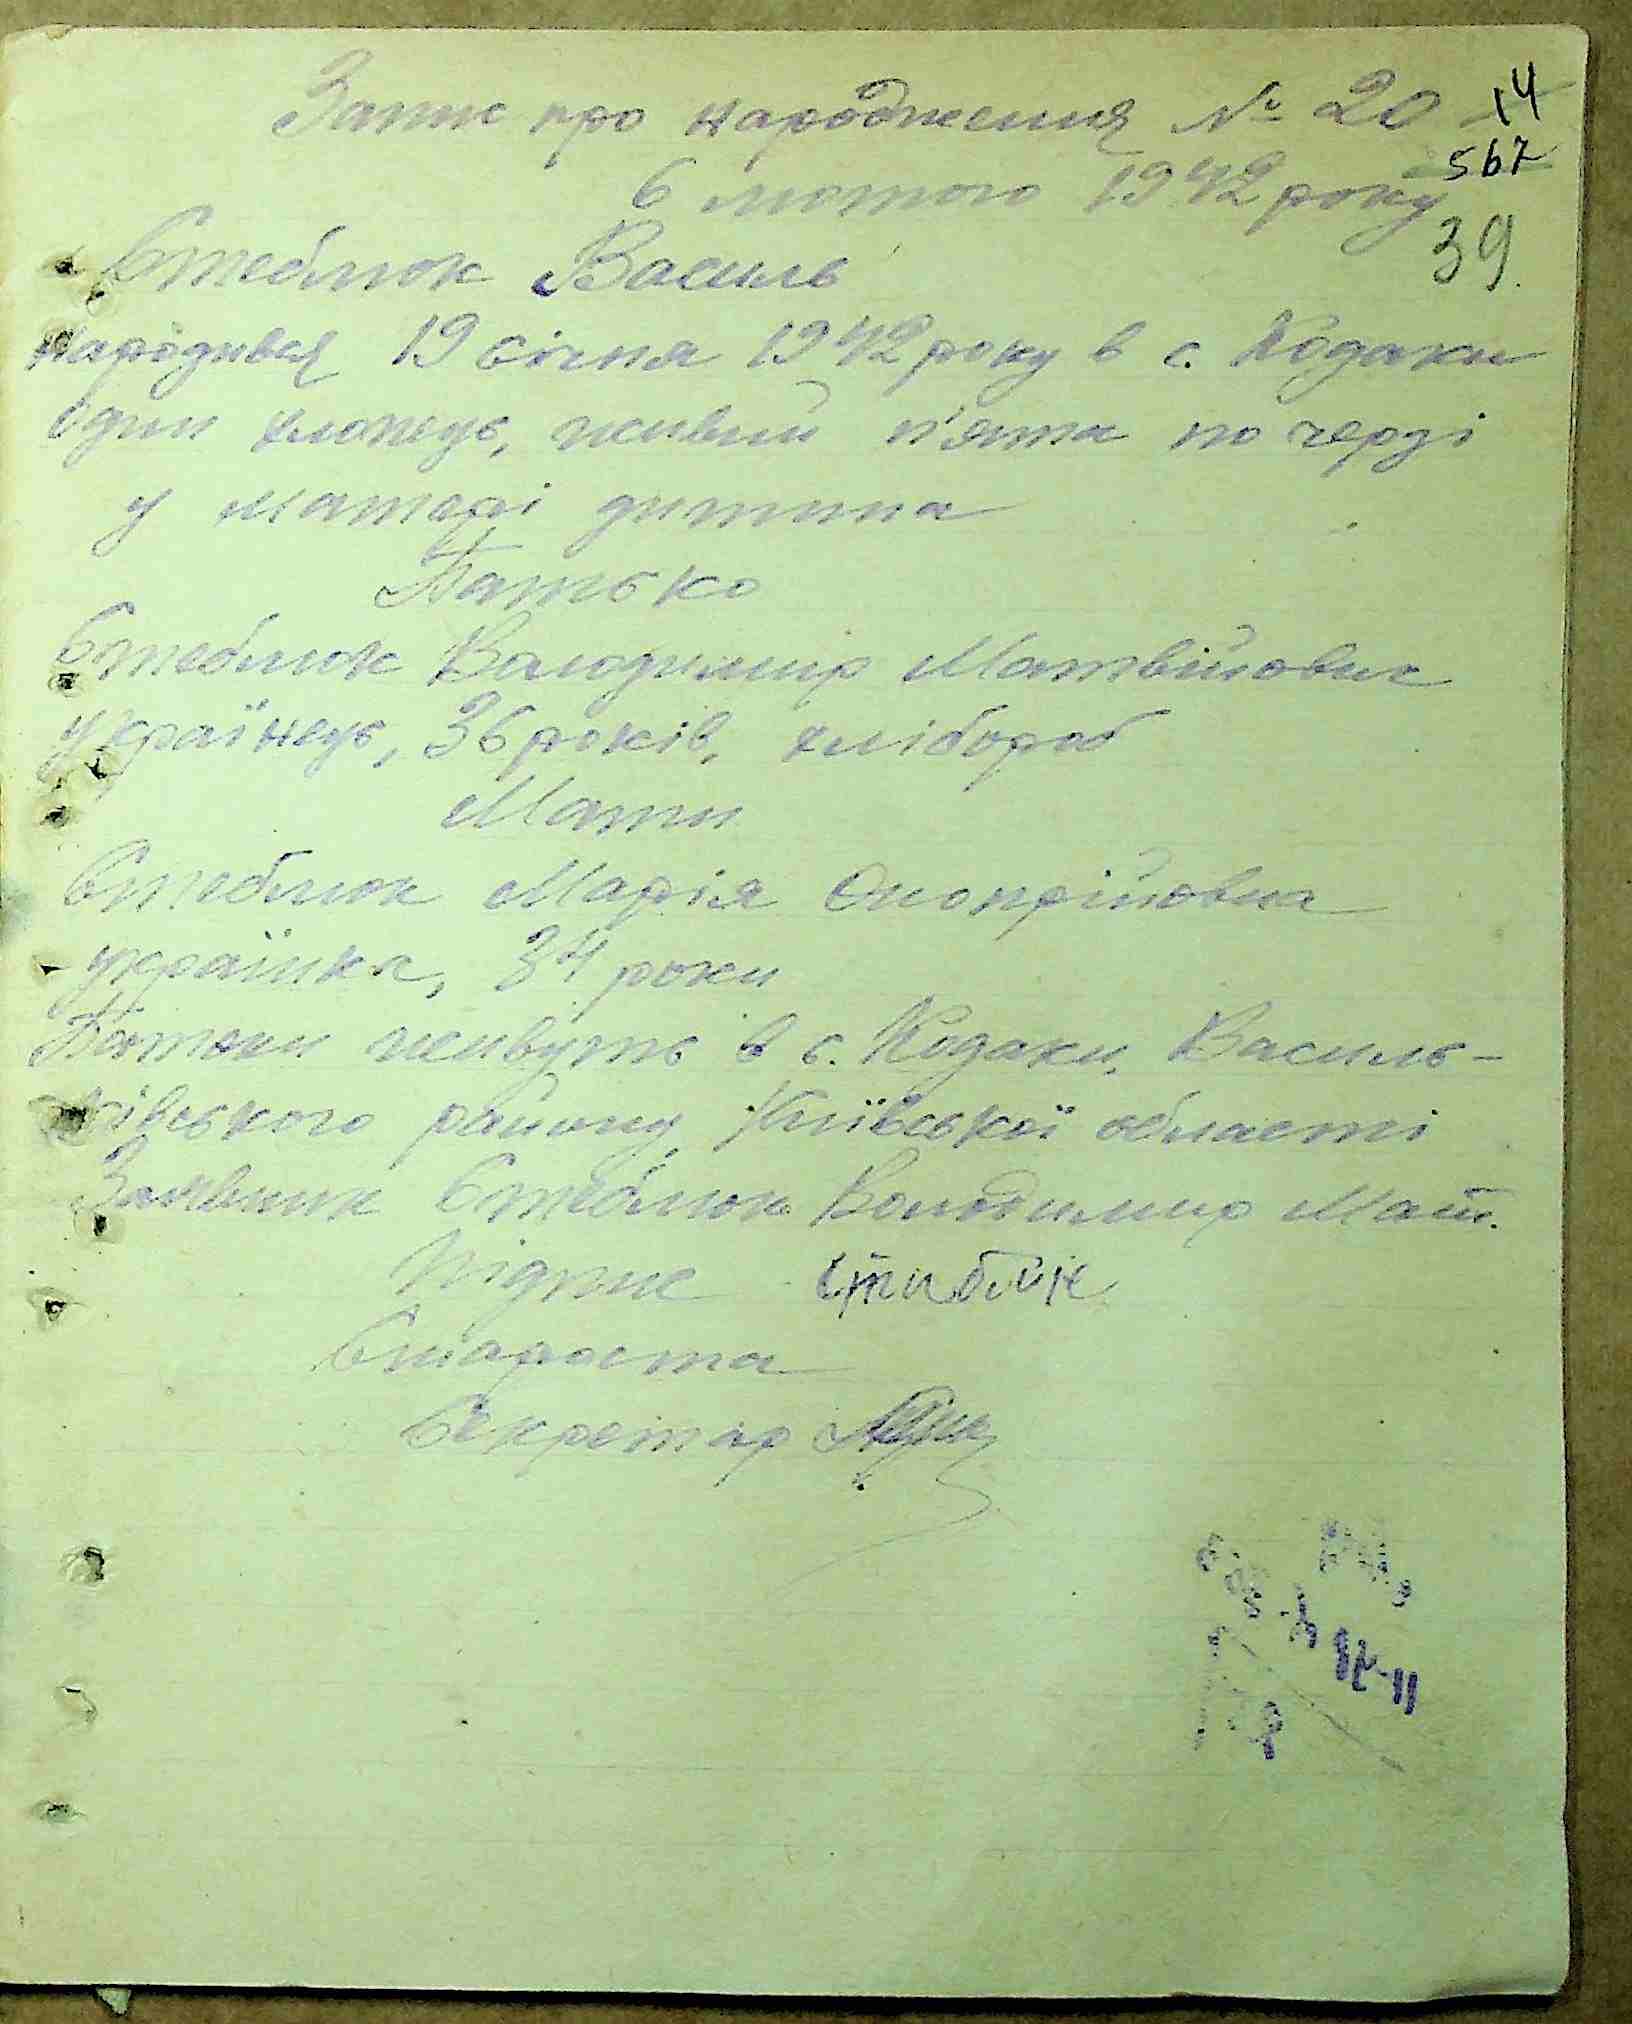 Запис про народження № 20
14
567
6 лютого 1942 року
39.
Стеблюк Василь
народився 19 січня 1942 року в с. Кодаки
один хлопець, живий п'ята по черзі
у матері дитина
Батько
Стеблюк Володимир Матвійович
українець, 36 років, хлібороб
Мати
Стеблюк Марія Онопрійовна
українка, 34 роки
Батьки живуть в с. Кодаки, Василь-
ківського району, Київської області
Заявник Стеблюк Володимир Матв.
Підпис стиблюк
Староста
Секретар